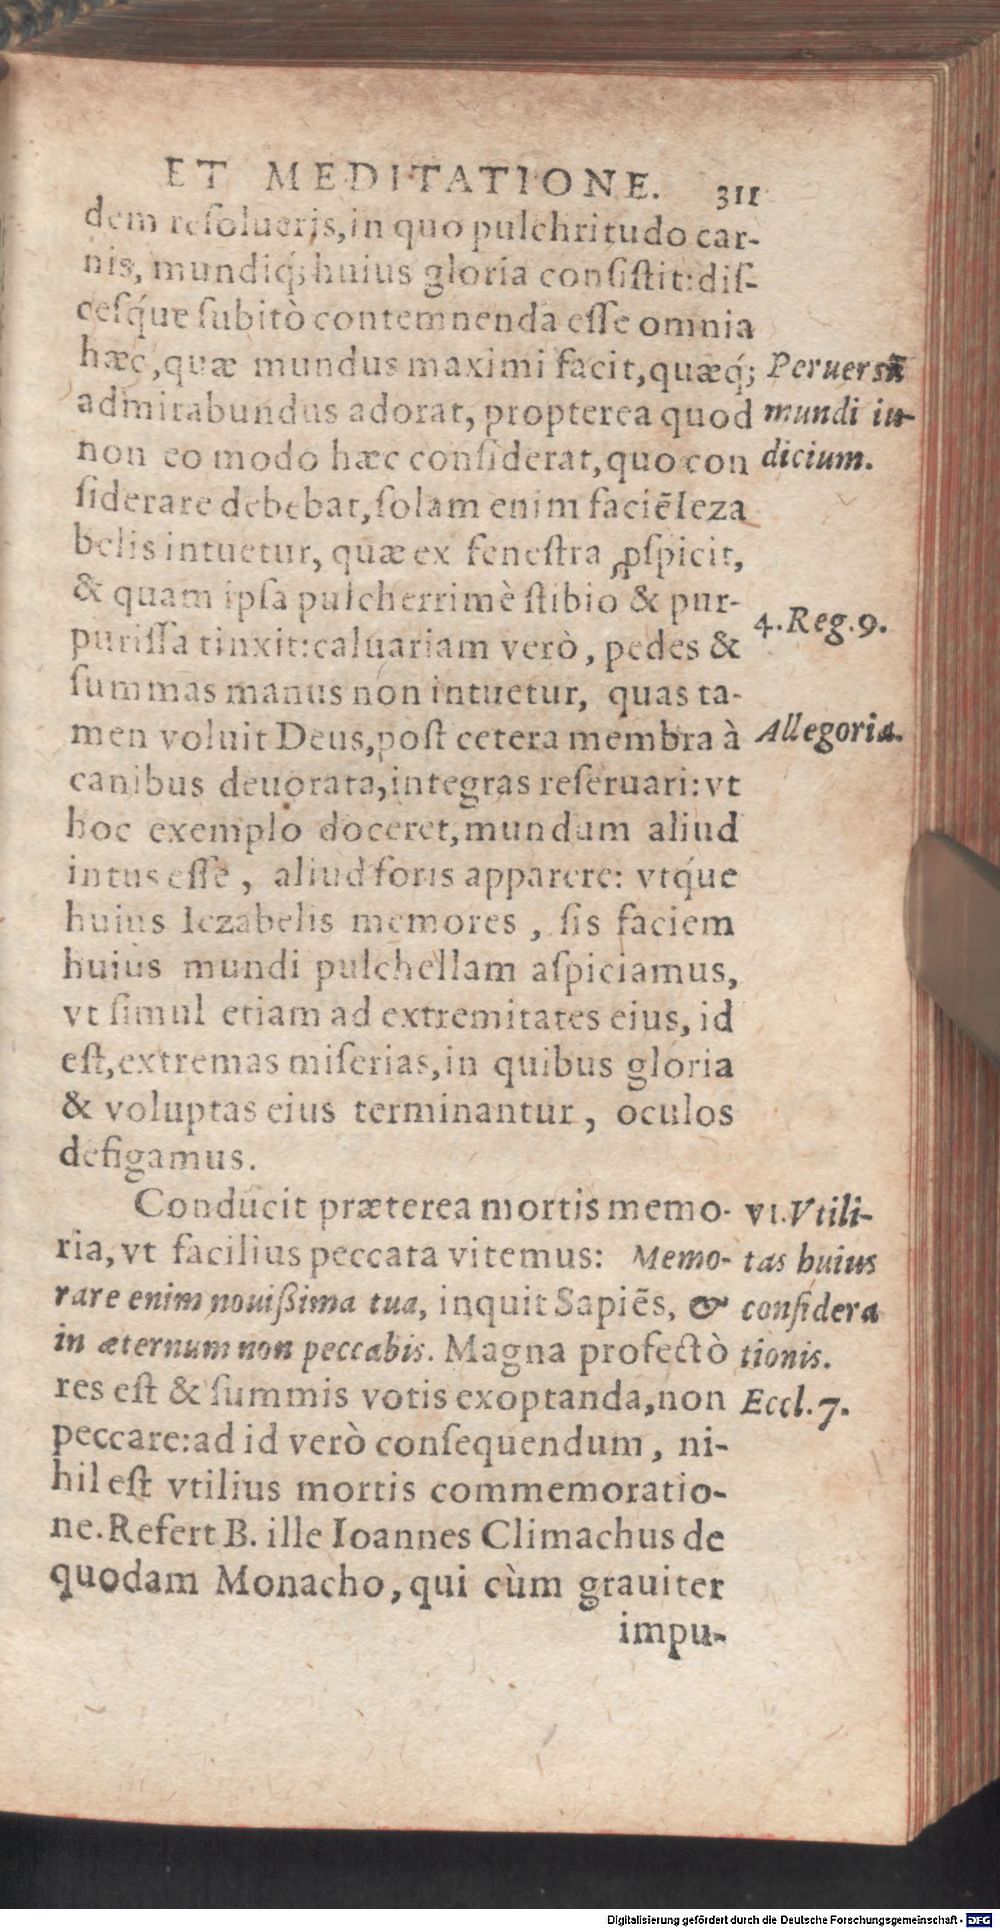 ET MEDITATIONE. 311
dem reſolueris, in quo pulchritudo car-
nis, mundiq́; huius gloria conſiſtit: diſ-
ceſq́ue ſubitò contemnenda eſſe omnia
hæc, quæ mundus maximi facit, quæq́;
admirabundus adorat, propterea quod
non eo modo hæc conſiderat, quo con
ſiderare debebat, ſolam enim faciē Ieza
belis intuetur, quæ ex feneſtra ꝓſpicit,
& quam ipſa pulcherrimè ſtibio & pur-
puriſſa tinxit: caluariam verò, pedes &
ſummas manus non intuetur, quas ta-
men voluit Deus, poſt cetera membra à
canibus deuorata, integras reſeruari: vt
hoc exemplo doceret, mundum aliud
intus eſſe, aliud foris apparere: vtq́ue
huius Iezabelis memores, ſis faciem
huius mundi pulchellam aſpiciamus,
vt ſimul etiam ad extremitates eius, id
eſt, extremas miſerias, in quibus gloria
& voluptas eius terminantur, oculos
defigamus.
Conducit præterea mortis memo-
ria, vt facilius peccata vitemus: Memo-
rare enim nouißima tua, inquit Sapiēs, &
in æternum non peccabis. Magna profectò
res eſt & ſummis votis exoptanda, non
peccare: ad id verò conſequendum, ni-
hil eſt vtilius mortis commemoratio-
ne. Refert B. ille Ioannes Climachus de
quodam Monacho, qui cùm grauiter
impu-
Peruersū
mundi iu-
dicium.
4. Reg. 9.
Allegoria.
VI. Vtili-
tas huius
conſidera
tionis.
Eccl. 7.
Digitalisierung gefördert durch die Deutsche Forschungsgemeinschaft - DFG